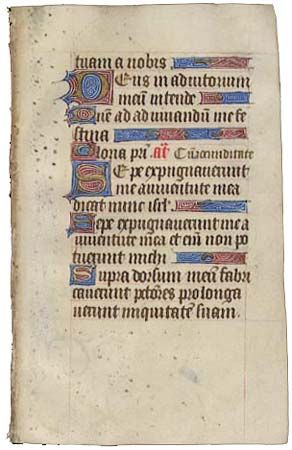 tuam a nobis
Deus in adiutorium
meū intende
Dñe ad adiuvandū me fe
stina
Gloria pri. añ. Cū iocunditate
Sepe expugnaverunt
me a iuventute mea
dicat nunc isrl.
Sepe expugnaverunt me a
iuventute mea et eni non po
tuerunt michi
Supra dorsum meū fabri
caverunt pctores prolonga
verunt iniquitatē suam.